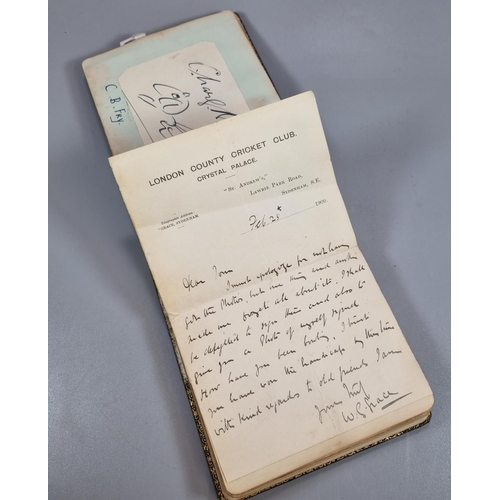 C. B. Fry.
LONDON COUNTY CRICKET CLUB.
CRYSTAL PALACE.
"ST. ANDREW'S,"
LAWRIE PARK ROAD,
SYDENHAM, S.E.
GRACE, SYDENHAM
Feb 25th 190
Dear Tom
I must apologize for not having
got the Photos, but one thing and another
made me forget all about it. I shall
be delighted to sign them and also to
give you a Photo of myself signed
How have you been bowling, I trust
you have won the handicap by this time
with kind regards to old friends I am
Yours truly
W. G. Grace